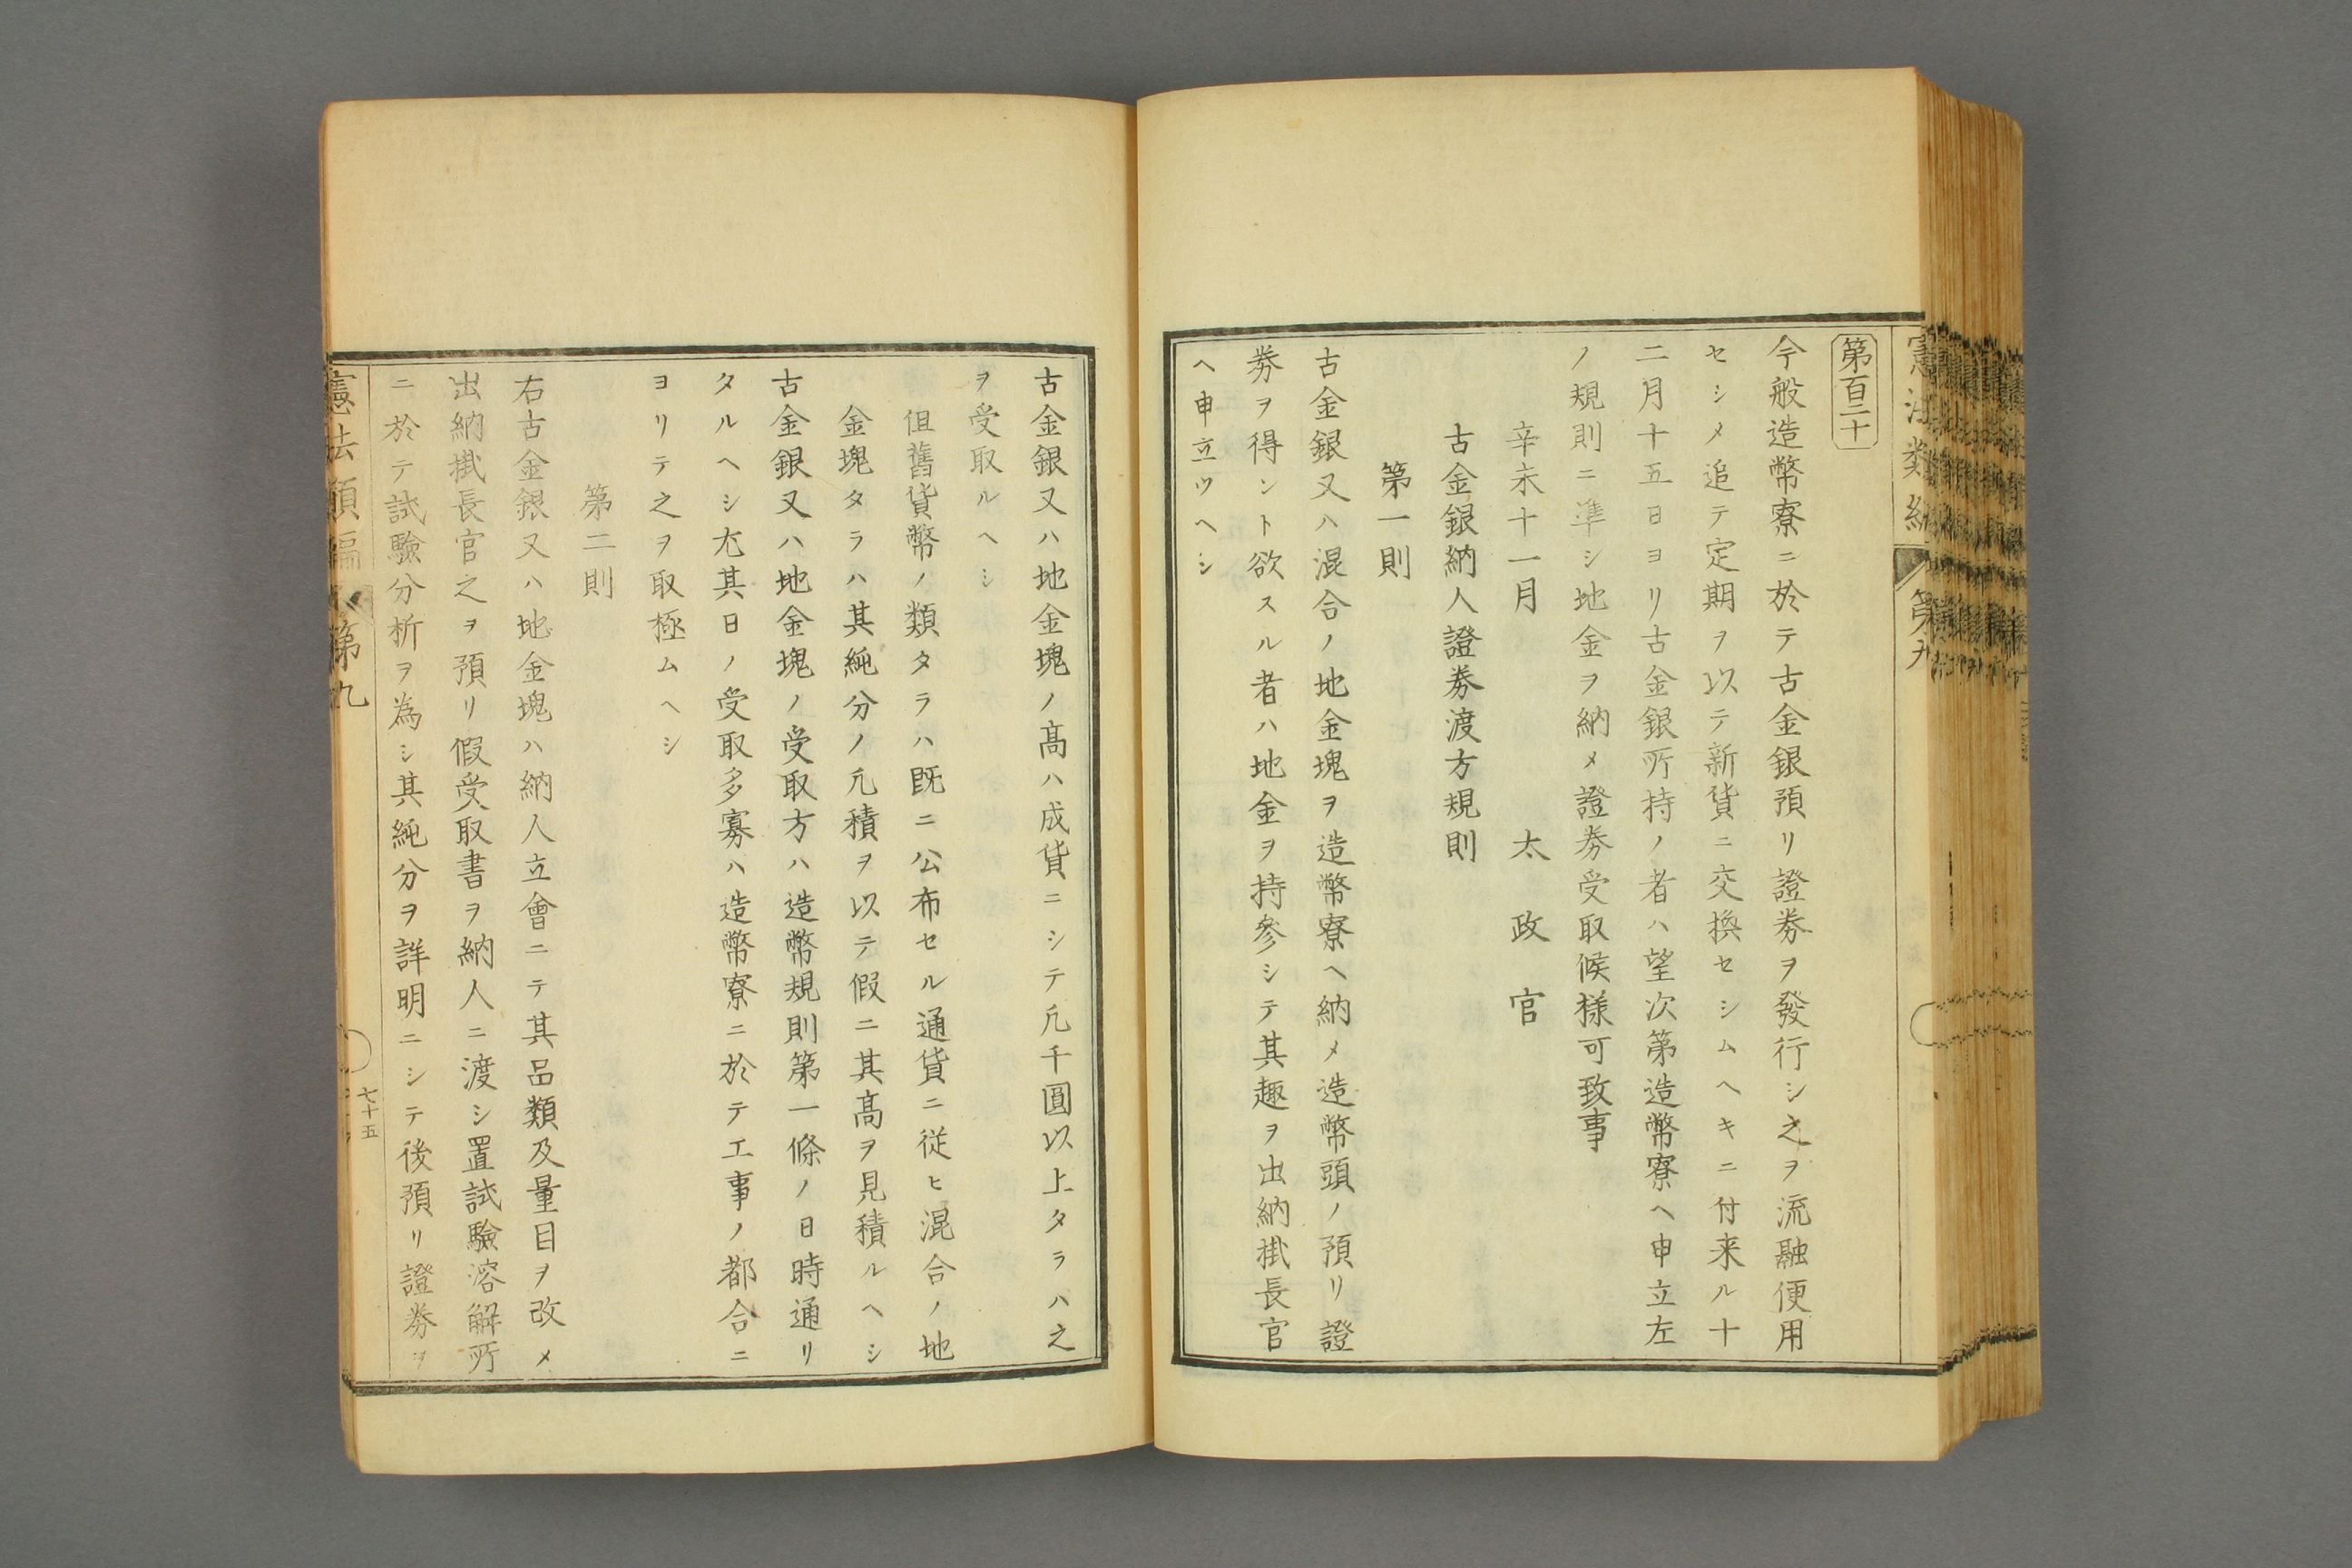 第百二十
今般造幣寮ニ於テ古金銀預リ證券ヲ發行シ之ヲ流融便用
セシメ追テ定期ヲ以テ新貨ニ交換セシムヘキニ付来ル十
二月十五日ヨリ古金銀所持ノ者ハ望次第造幣寮ヘ申立左
ノ規則ニ準シ地金ヲ納メ證券受取候様可致事
辛未十一月　太政官
古金銀納人證券渡方規則
第一則
古金銀又ハ混合ノ地金塊ヲ造幣寮ヘ納メ造幣頭ノ預リ證
券ヲ得ント欲スル者ハ地金ヲ持參シテ其趣ヲ出納掛長官
ヘ申立ツヘシ
古金銀又ハ地金塊ノ髙ハ成貨ニシテ凢千圓以上タラハ之
ヲ受取ルヘシ
但舊貨幣ノ類タラハ既ニ公布セル通貨ニ従ヒ混合ノ地
金塊タラハ其純分ノ凢積ヲ以テ假ニ其髙ヲ見積ルヘシ
古金銀又ハ地金塊ノ受取方ハ造幣規則第一條ノ日時通リ
タルヘシ尤其日ノ受取多寡ハ造幣寮ニ於テ工事ノ都合ニ
ヨリテ之ヲ取極ムヘシ
第二則
右古金銀又ハ地金塊ハ納人立會ニテ其品類及量目ヲ改メ
出納掛長官之ヲ預リ假受取書ヲ納人ニ渡シ置試驗溶解所
ニ於テ試驗分析ヲ為シ其純分ヲ詳明ニシテ後預リ證券ヲ
憲法類編 第九
七十五